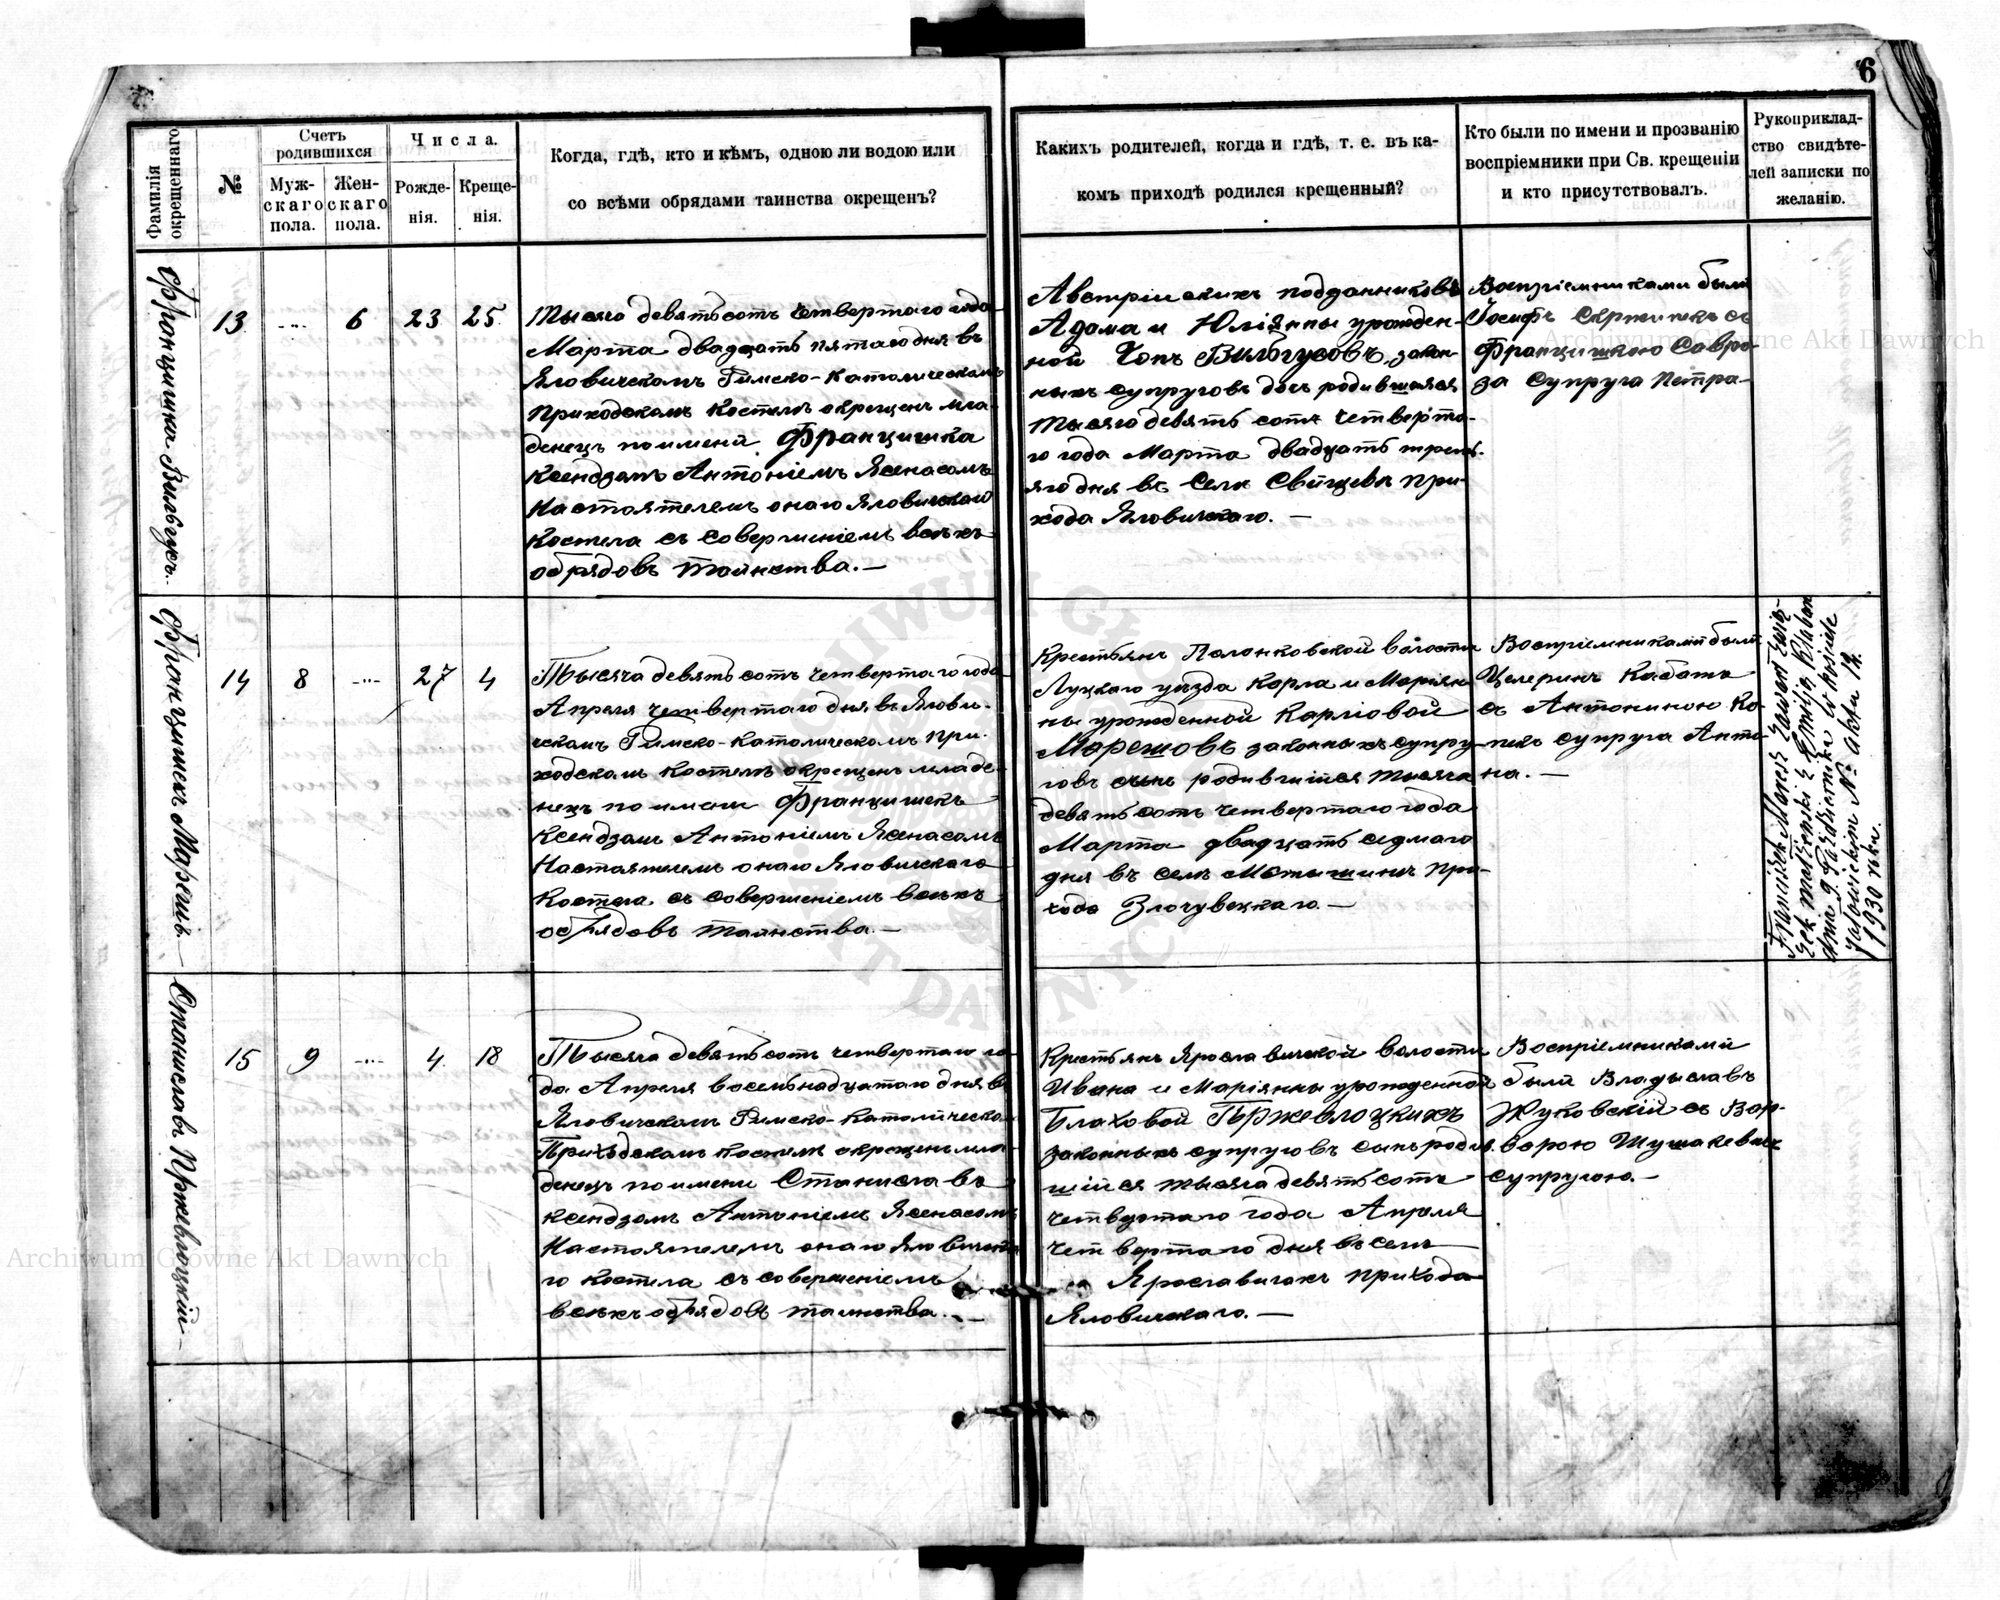 6
Фамилія окрещеннаго
№
Счетъ родившихся
Муж-скаго пола.
Жен-скаго пола.
Числа.
Рожде-нія.
Креще-нія.
Когда, гдѣ, кто и кѣмъ, одною ли водою или
со всѣми обрядами таинства окрещенъ?
Какихъ родителей, когда и гдѣ, т. е. въ ка-
комъ приходѣ родился крещенный?
Кто были по имени и прозванію
воспріемники при Св. крещеніи
и кто присутствовалъ.
Рукоприклад-
ство свидѣте-
лей записки по
желанію.
Францишка Вильгусъ.
13 6 23 25
Тысяча девятьсотъ четвертаго года
Марта двадцать пятаго дня въ
Яловичскомъ Римско-Католическомъ
приходскомъ костелѣ окрещенъ мла-
денецъ по имени Францишка
Ксендзомъ Антоніемъ Ясенасомъ
Настоятелемъ онаго Яловичскаго
Костела съ совершеніемъ всѣхъ
обрядовъ таинства.—
Австрійскихъ подданниковъ
Адама и Юліянны урожден-
ной Вильгусовъ, закон-
ныхъ супруговъ дочь родившаяся
тысяча девятьсотъ четверта-
го года Марта двадцать треть-
яго дня въ селѣ Свищевѣ при-
хода Яловичскаго.—
Воспріемниками были
Іосифъ съ
Францишкою
за супруга Петра
Францишекъ Марешъ.—
14 8 27 4
Тысяча девятьсотъ четвертаго года
Апреля четвертаго дня, въ Ялови-
чскомъ Римско-Католическомъ при-
ходскомъ костелѣ окрещенъ младе-
нецъ по имени Францишекъ
Ксендзомъ Антоніемъ Ясенасомъ
Настоятелемъ онаго Яловичскаго
Костела съ совершеніемъ всѣхъ
обрядовъ таинства.—
Крестьянъ Полонковской волости
Луцкаго уѣзда Карла и Маріян-
ны урожденной Карловой
Марешовъ законныхъ супру-
говъ сынъ родившійся тысяча
девятьсотъ четвертаго года
Марта двадцать седмаго
дня въ селѣ при-
хода
Воспріемниками были
Целеринъ Кабатъ
съ Антониною Ко-
супруга Анто-
на.—
Franciszek Maresz zawarł zwią-
zek małżeński z Emilją
dnia 9 Października w kościele
Jałowickim № aktu 14.
1930 roku.
Станиславъ Пржевлоцкій—
15 9 4 18
Тысяча девятьсотъ четвертаго го-
да Апреля восемьнадцатаго дня въ
Яловичскомъ Римско-Католическо-
Приходскомъ костелѣ окрещенъ мла-
денецъ по имени Станиславъ
Ксендзомъ Антоніемъ Ясенасомъ
Настоятелемъ онаго Яловичска-
го костела съ совершеніемъ
всѣхъ обрядовъ таинства.—
Крестьянъ Ярославичской волости
Ивана и Маріянны урожденной
Блаховой Пржевлоцкихъ
законныхъ супруговъ сынъ родив-
шійся тысяча девятьсотъ
четвертаго года Апреля
четвертаго дня въ селѣ
Ярославичахъ прихода
Яловичскаго.—
Воспріемниками
были Владыславъ
Жуковскій съ Вар-
варою
супругою.—
Archiwum Główne Akt Dawnych
Archiwum Główne Akt Dawnych